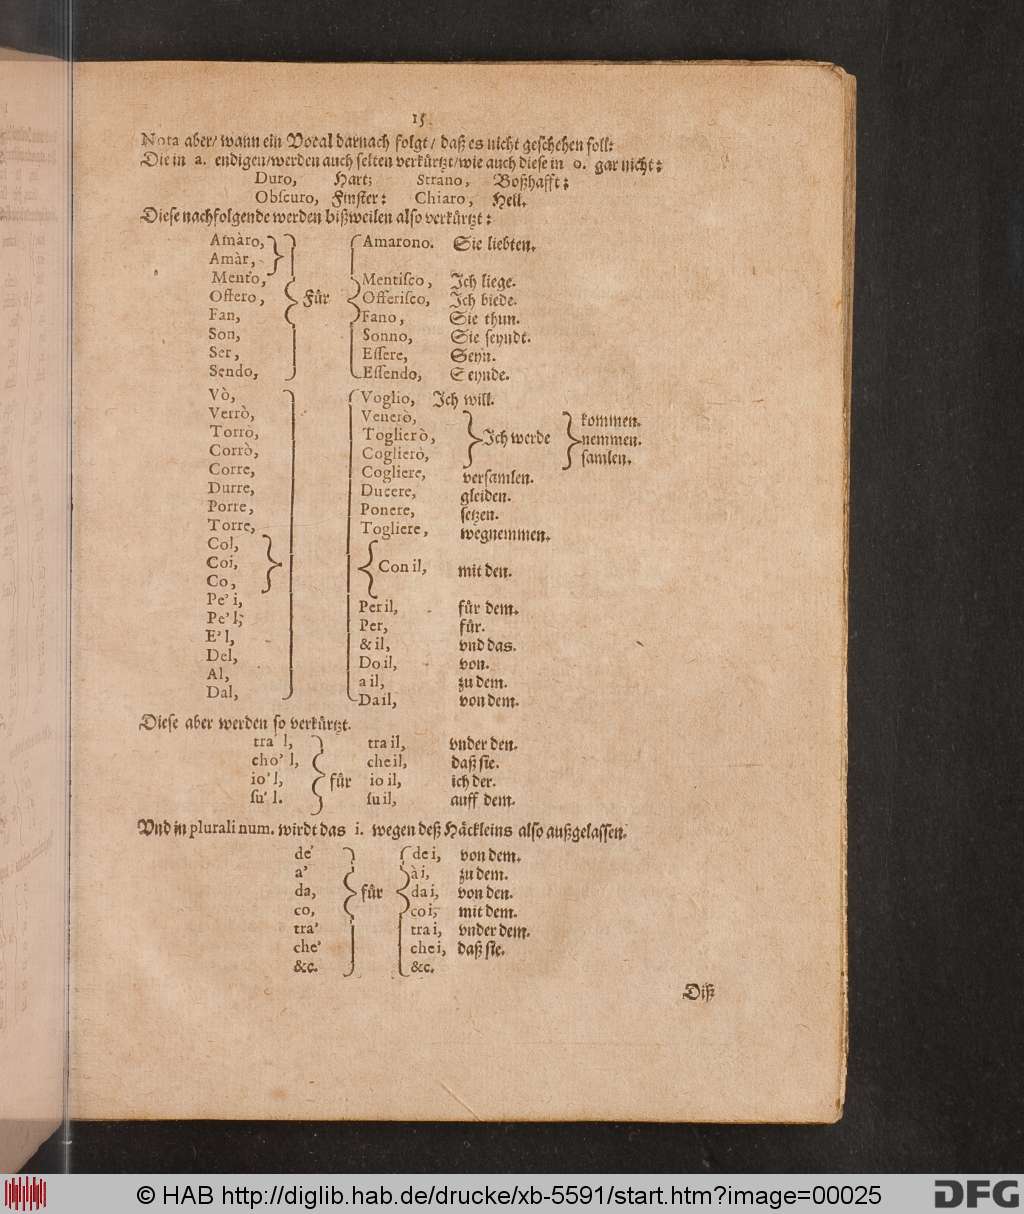 15
Nota aber/ wann ein Vocal darnach folgt/ daß es nicht geschehen soll:
Die in a. endigen/werden auch selten verkürtzt/wie auch diese in o. gar nicht:
Duro, Hart; Strano, Boßhafft;
Obscuro, Finster: Chiaro, Hell.
Diese nachfolgende werden bißweilen also verkürtzt:
Amàro, Amarono. Sie liebten.
Amàr,
Mento, Mentisco, Ich liege.
Offero, Für Offerisco, Ich biede.
Fan, Fano, Sie thun.
Son, Sonno, Sie seyndt.
Ser, Essere, Seyn.
Sendo, Essendo, Seynde.
Vò, Voglio, Ich will.
Verrò, Venerò, kommen.
Torrò, Toglierò, Ich werde nemmen.
Corrò, Coglierò, samlen.
Corre, Cogliere, versamlen.
Durre, Ducere, gleiden.
Porre, Ponere, setzen.
Torre, Togliere, wegnemmen.
Col,
Coi, Con il, mit den.
Co,
Pe' i, Per il, für dem.
Pe' l; Per, für.
E' l, & il, vnd das.
Del, Do il, von.
Al, a il, zu dem.
Dal, Da il, von dem.
Diese aber werden so verkürtzt.
tra' l, tra il, vnder den.
cho' l, che il, daß sie.
io' l, für io il, ich der.
su' l. su il, auff dem.
Vnd in plurali num. wirdt das i. wegen deß Häckleins also außgelassen.
de' de i, von dem.
a' à i, zu dem.
da, für da i, von den.
co, co i, mit dem.
tra' tra i, vnder dem.
che' che i, daß sie.
&c. &c.
Diß
© HAB http://diglib.hab.de/drucke/xb-5591/start.htm?image=00025
DFG